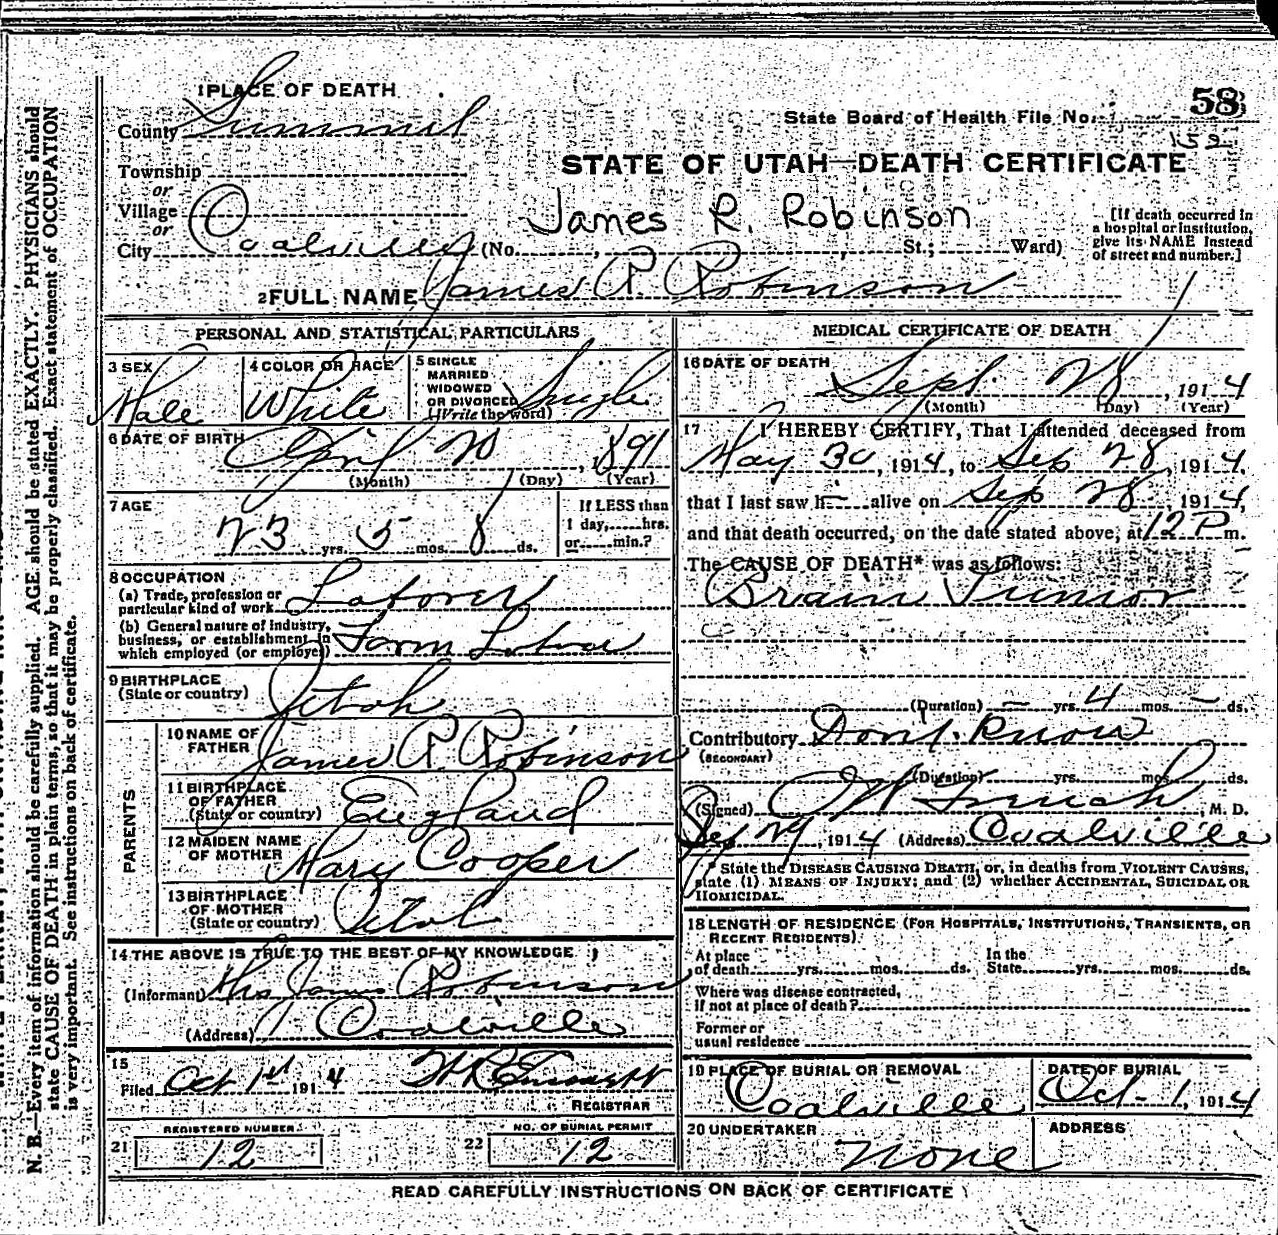 1 PLACE OF DEATH
County Summit
State Board of Health File No. 58
152
STATE OF UTAH—DEATH CERTIFICATE
Township
or
Village
or
City Coalville (No. , St.; Ward)
James R. Robinson
[If death occurred in
a hospital or institution,
give its NAME instead
of street and number.]
2 FULL NAME James R. Robinson
PERSONAL AND STATISTICAL PARTICULARS
3 SEX
Male
4 COLOR OR RACE
White
5 SINGLE
MARRIED
WIDOWED
OR DIVORCED
(Write the word)
Single
6 DATE OF BIRTH
April 20, 1891
(Month) (Day) (Year)
7 AGE
23 yrs. 5 mos. 8 ds.
If LESS than
1 day, hrs.
or min.?
8 OCCUPATION
(a) Trade, profession or
particular kind of work Laborer
(b) General nature of industry,
business, or establishment in
which employed (or employer) Farm Labor
9 BIRTHPLACE
(State or country) Utah
PARENTS
10 NAME OF
FATHER James R. Robinson
11 BIRTHPLACE
OF FATHER
(State or country) England
12 MAIDEN NAME
OF MOTHER Mary Cooper
13 BIRTHPLACE
OF MOTHER
(State or country) Utah
14 THE ABOVE IS TRUE TO THE BEST OF MY KNOWLEDGE
(Informant) Mrs James Robinson
(Address) Coalville
15
Filed Oct 1st 1914
REGISTRAR
REGISTERED NUMBER
21 12
NO. OF BURIAL PERMIT
22 12
MEDICAL CERTIFICATE OF DEATH
16 DATE OF DEATH
Sept. 28, 1914
(Month) (Day) (Year)
17 I HEREBY CERTIFY, That I attended deceased from
May 30, 1914, to Sep 28, 1914,
that I last saw h alive on Sep 28, 1914,
and that death occurred, on the date stated above, at 12 P m.
The CAUSE OF DEATH* was as follows:
Brain Tumor
(Duration) – yrs. 4 mos. – ds.
Contributory Don't Know
(SECONDARY)
(Duration) yrs. mos. ds.
(Signed) , M. D.
Sep 29, 1914 (Address) Coalville
* State the DISEASE CAUSING DEATH, or, in deaths from VIOLENT CAUSES,
state (1) MEANS OF INJURY; and (2) whether ACCIDENTAL, SUICIDAL OR
HOMICIDAL.
18 LENGTH OF RESIDENCE (FOR HOSPITALS, INSTITUTIONS, TRANSIENTS, OR
RECENT RESIDENTS).
At place
of death yrs. mos. ds.
In the
State yrs. mos. ds.
Where was disease contracted,
if not at place of death?
Former or
usual residence
19 PLACE OF BURIAL OR REMOVAL
Coalville
DATE OF BURIAL
Oct – 1, 1914
20 UNDERTAKER
None
ADDRESS
READ CAREFULLY INSTRUCTIONS ON BACK OF CERTIFICATE
N. B.—Every item of information should be carefully supplied. AGE should be stated EXACTLY. PHYSICIANS should
state CAUSE OF DEATH in plain terms, so that it may be properly classified. Exact statement of OCCUPATION
is very important. See instructions on back of certificate.